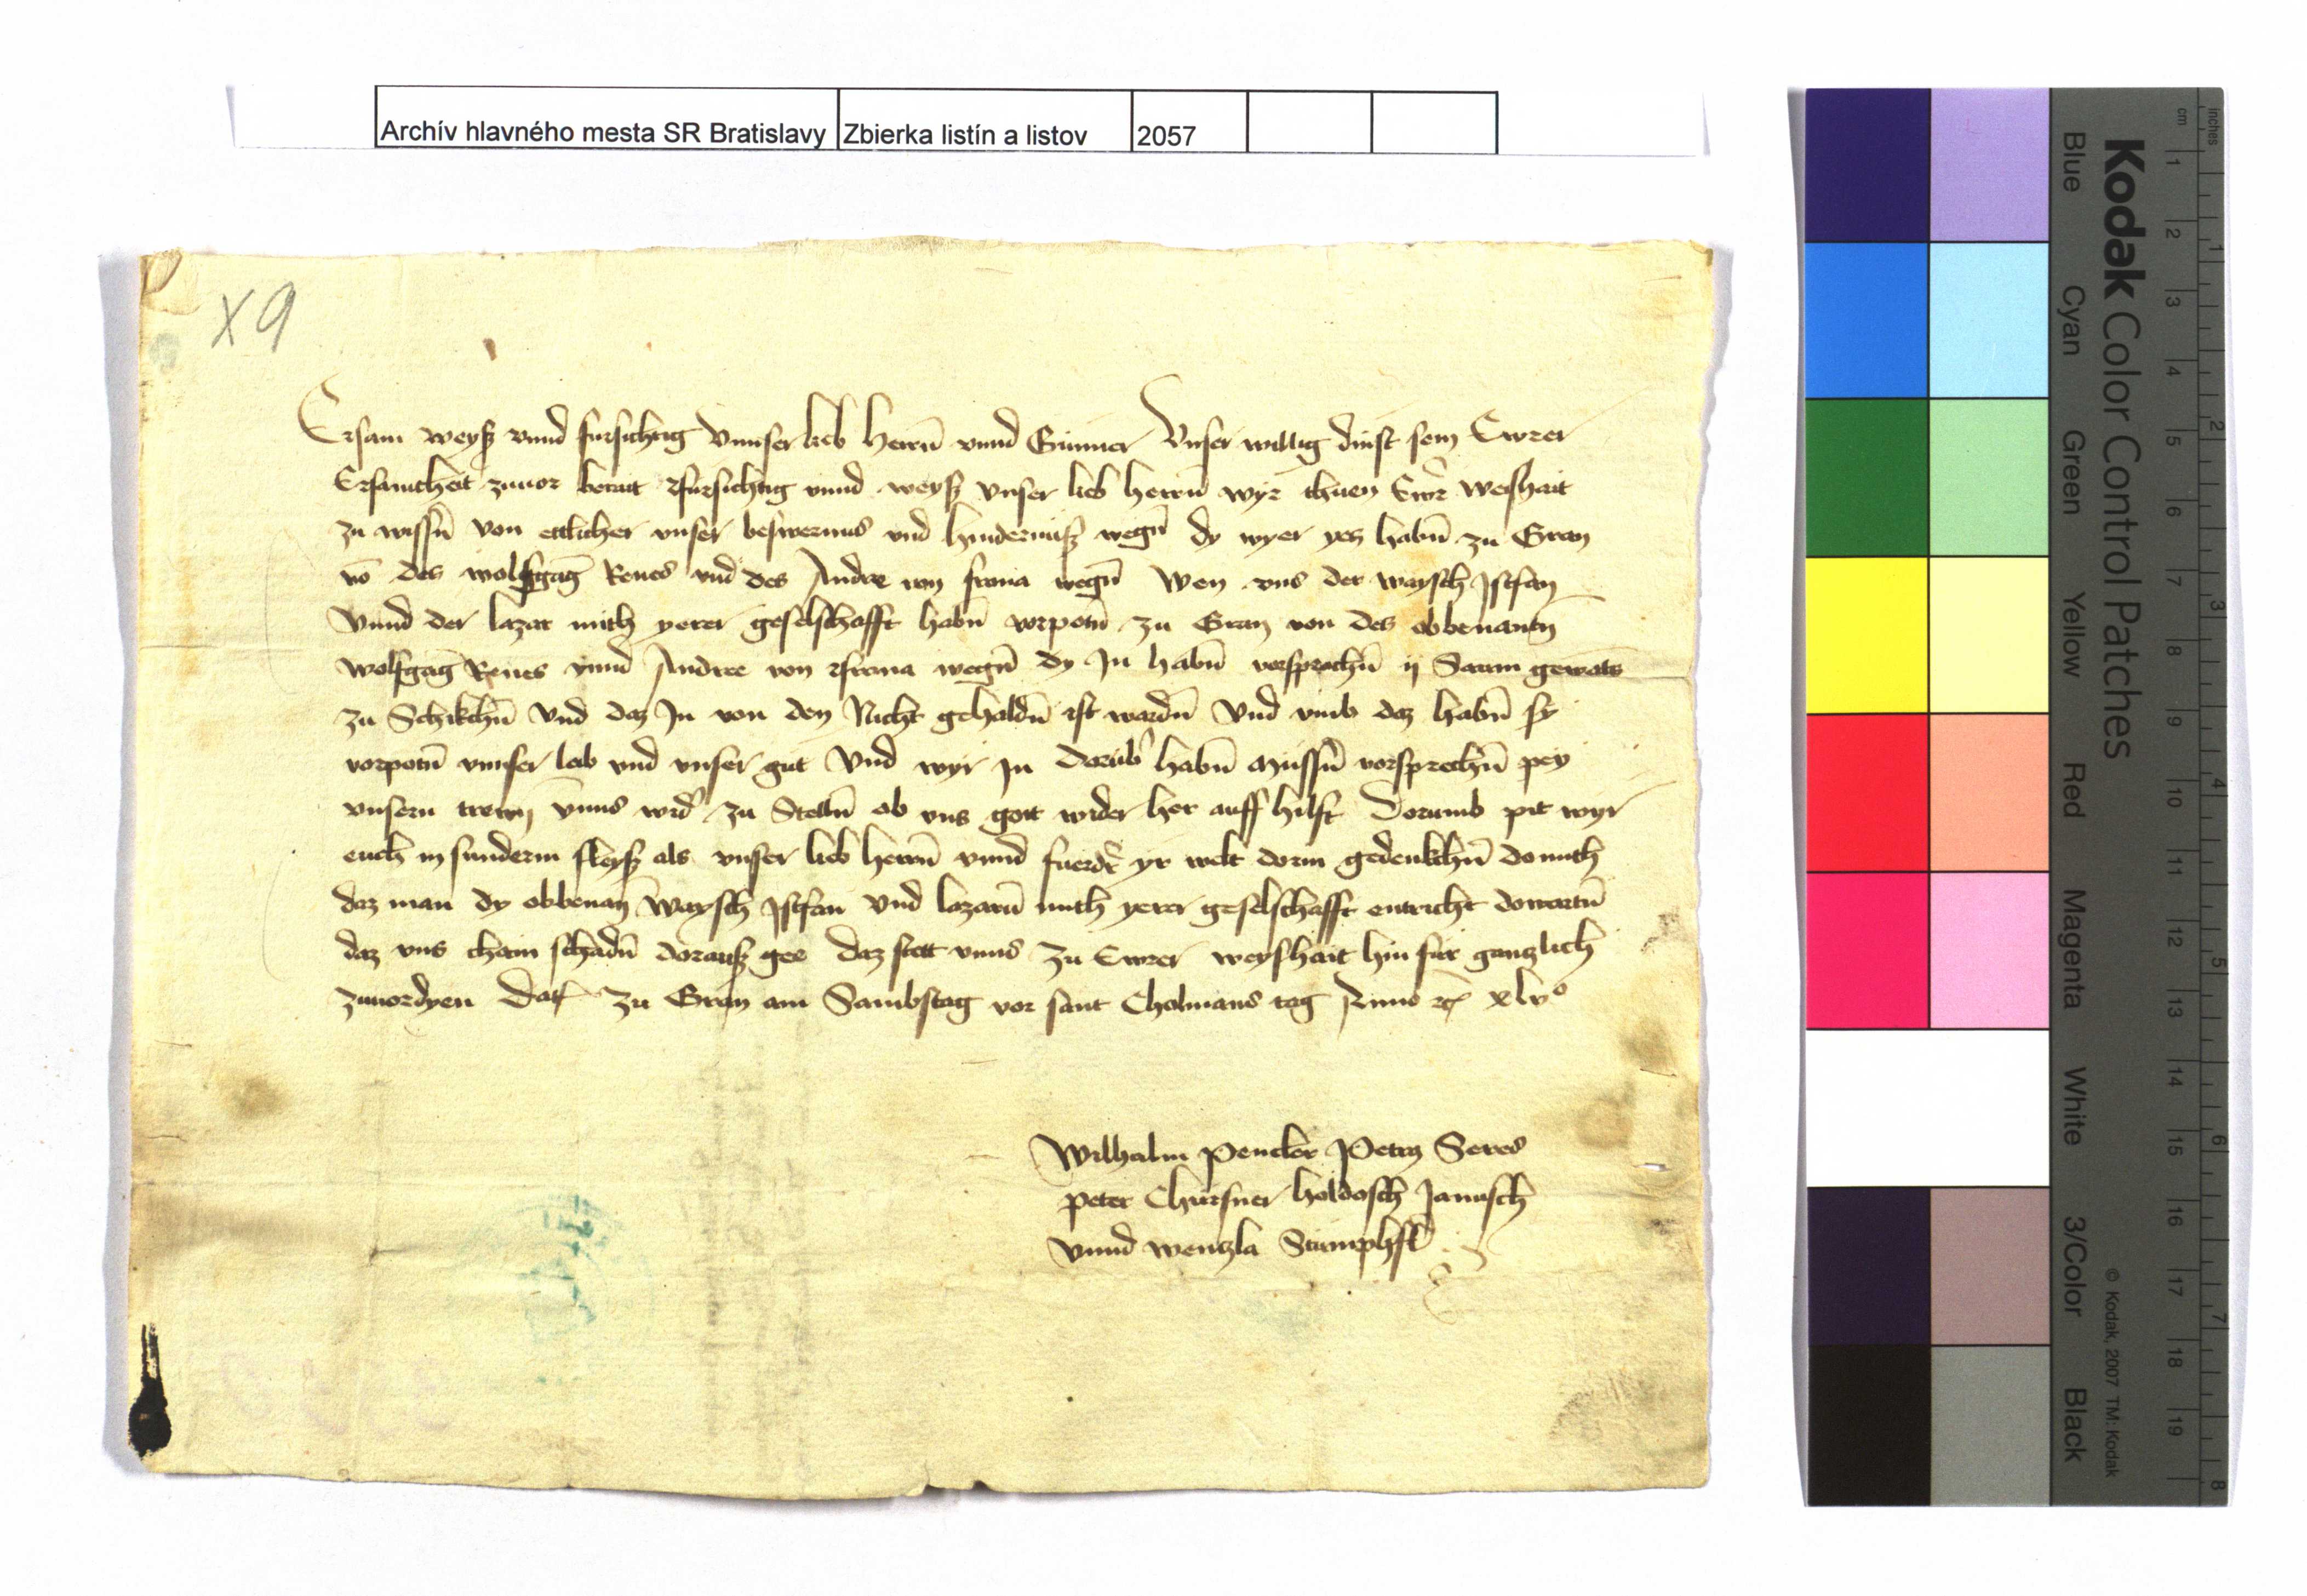 Archív hlavného mesta SR Bratislavy Zbierka listín a listov 2057
X9
Ersam weyß vnnd fursichtig Vnnser lieb herrn̄ vnnd Gunner Vnser willig dinst sein Ewrer
Ersamcheit zuuor berait fursichtig vnnd weyß vnser lieb herrn̄ wyr thuen Ewr̄ weishait
zu wissn̄ von ettlicher vnser beswernus vnd hindernuß wegn̄ dy wyer yez habn̄ zu Gran
vō des wolfgāg Renes vnd des Andre von frona wegn̄ Wen vns der waysch Istfan
Vnnd der lazar mith yerer geselschafft habn̄ vorpotn̄ zu Gran von des obbenantn̄
wolfgāg Renes vnnd Andree von frona wegn̄ dy In habn̄ vorsprochn̄ ij Sawm gewats
zu Schikchn̄ Vnd daz In von den Nicht gehaldn̄ ist wardn̄ Vnd vmb daz habn̄ sy
vorpotn̄ vnnser leib vnd vnser gut Vnd wyr In dorub̄ habn̄ mussn̄ vorsprechn̄ pey
vnsern trewn̄ vnns wid̄ zu Stelln̄ ob vns gott wider her auff hilft Dorumb pit wyr
euch in sunderm fleyß als vnser lieb herrn̄ vnnd fuerdr̄ yr welt dorin gedenkchn̄ domith
daz man dy obbenan̄ Waysch Istfan Vnd lazarn̄ mith yerer geselschafft entricht dowartn̄
daz vns chain schadn̄ dorauß gee daz stett vnns zu Ewrer weyshait hin fur ganzlich
zuuordyen Dat̄ zu Gran am Sambstag vor sant Cholmans tag Anno rc̄ xlvº
Wilhalm Pentler Petry Seres
peter Chursner holdosch Janusch
vnnd wenzla Stumphstl̄
Kodak Color Control Patches
Blue Cyan Green Yellow Red Magenta White 3/Color Black
© Kodak, 2007 TM: Kodak
inches 1 2 3 4 5 6 7 8
cm 1 2 3 4 5 6 7 8 9 10 11 12 13 14 15 16 17 18 19